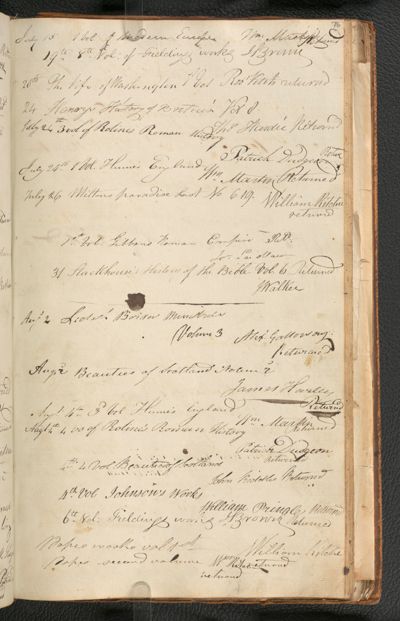 July 15 1 Vol of Modern Europe Wm Returned
19th 5th Vol. of Fieldings works J Brown
20th The life of Washington 1 Vol Robt returned
24 Henrys History of Vol 8
Returned
July 24th 3 vol of Rolines Roman History
Patrick Dudgeon
July 24th 1 Vol. Humes England Wm Returned
July 26 Miltons paradise Lost No 619 William Ritchie
returned
1st Vol. Gibbons Roman Empire Rd.
31 Stackhouses History of the Bible Vol 6 Returned
J Walker
Augt 2 Border Minstrels
Volume 3 Alexr Galloway
Returned
Augt 2 Beauties of Scotland Volume 2
James
Returned
Augt 4th 3d Vol Humes England
Wm Returned
Augt 4 vo of Rolines Roman History
Patrick Dudgeon
returned
4th Vol Beauties of Scotland
John Returned
4th Vol Johnsons Works
William Pringle Returned
6th Vol. Fieldings works J Brown Returned
Popes works vol 1st William Ritchie
Popes second volume Wm returned
returned